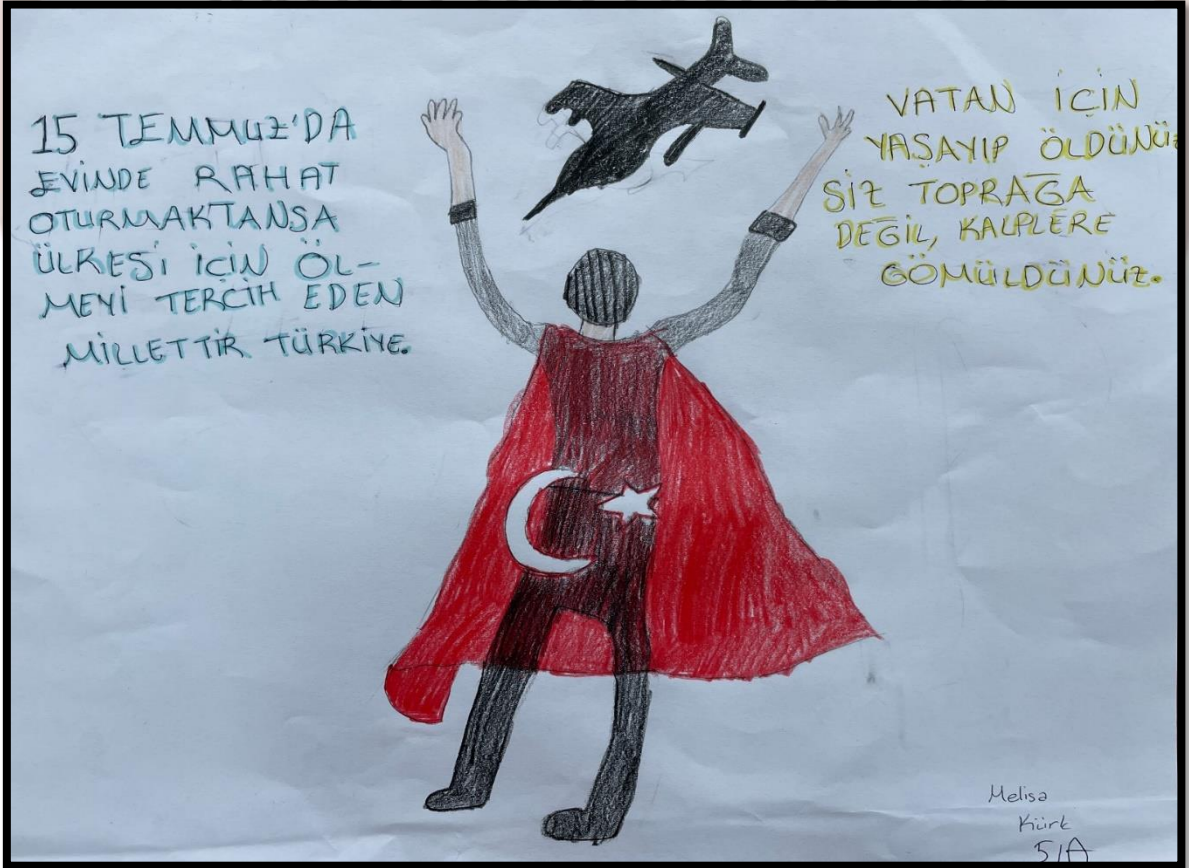 15 TEMMUZ'DA
EVİNDE RAHAT
OTURMAKTANSA
ÜLKESİ İÇİN ÖL-
MEYİ TERCİH EDEN
MİLLETTİR TÜRKİYE.
VATAN İÇİN
YAŞAYIP ÖLDÜNÜZ
SİZ TOPRAĞA
DEĞİL, KALPLERE
GÖMÜLDÜNÜZ.
Melisa
Kürk
5/A